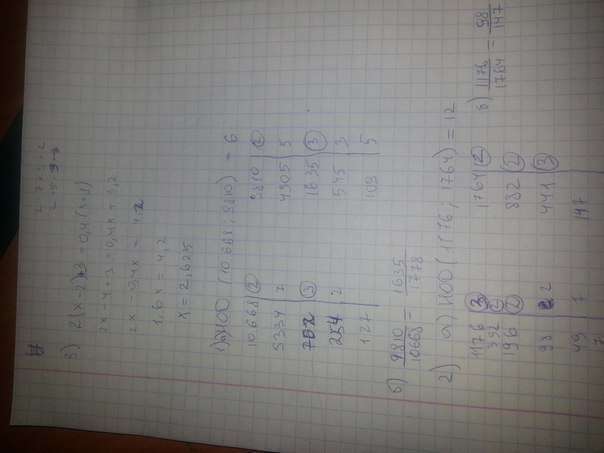 3) 2(x-2)+3=0,4(x+8)
2x-4+3=0,4x+3,2
2x-0,4x = 4,2
1,6x = 4,2
x=2,625
1) а) НОД (10668; 9810) = 6
10668 | 2
5334 | 2
762 | 3
254 | 2
127
9810 | 2
4905 | 3
1635 | 3
545 | 5
109
б) 9810/10668 = 1635/1778
2) а) НОД (1176; 1764) = 12
1176 | 3
392 | 2
196 | 2
98 | 2
49 | 7
7
1764 | 2
882 | 2
441 | 3
147
б) 1176/1764 = 98/147